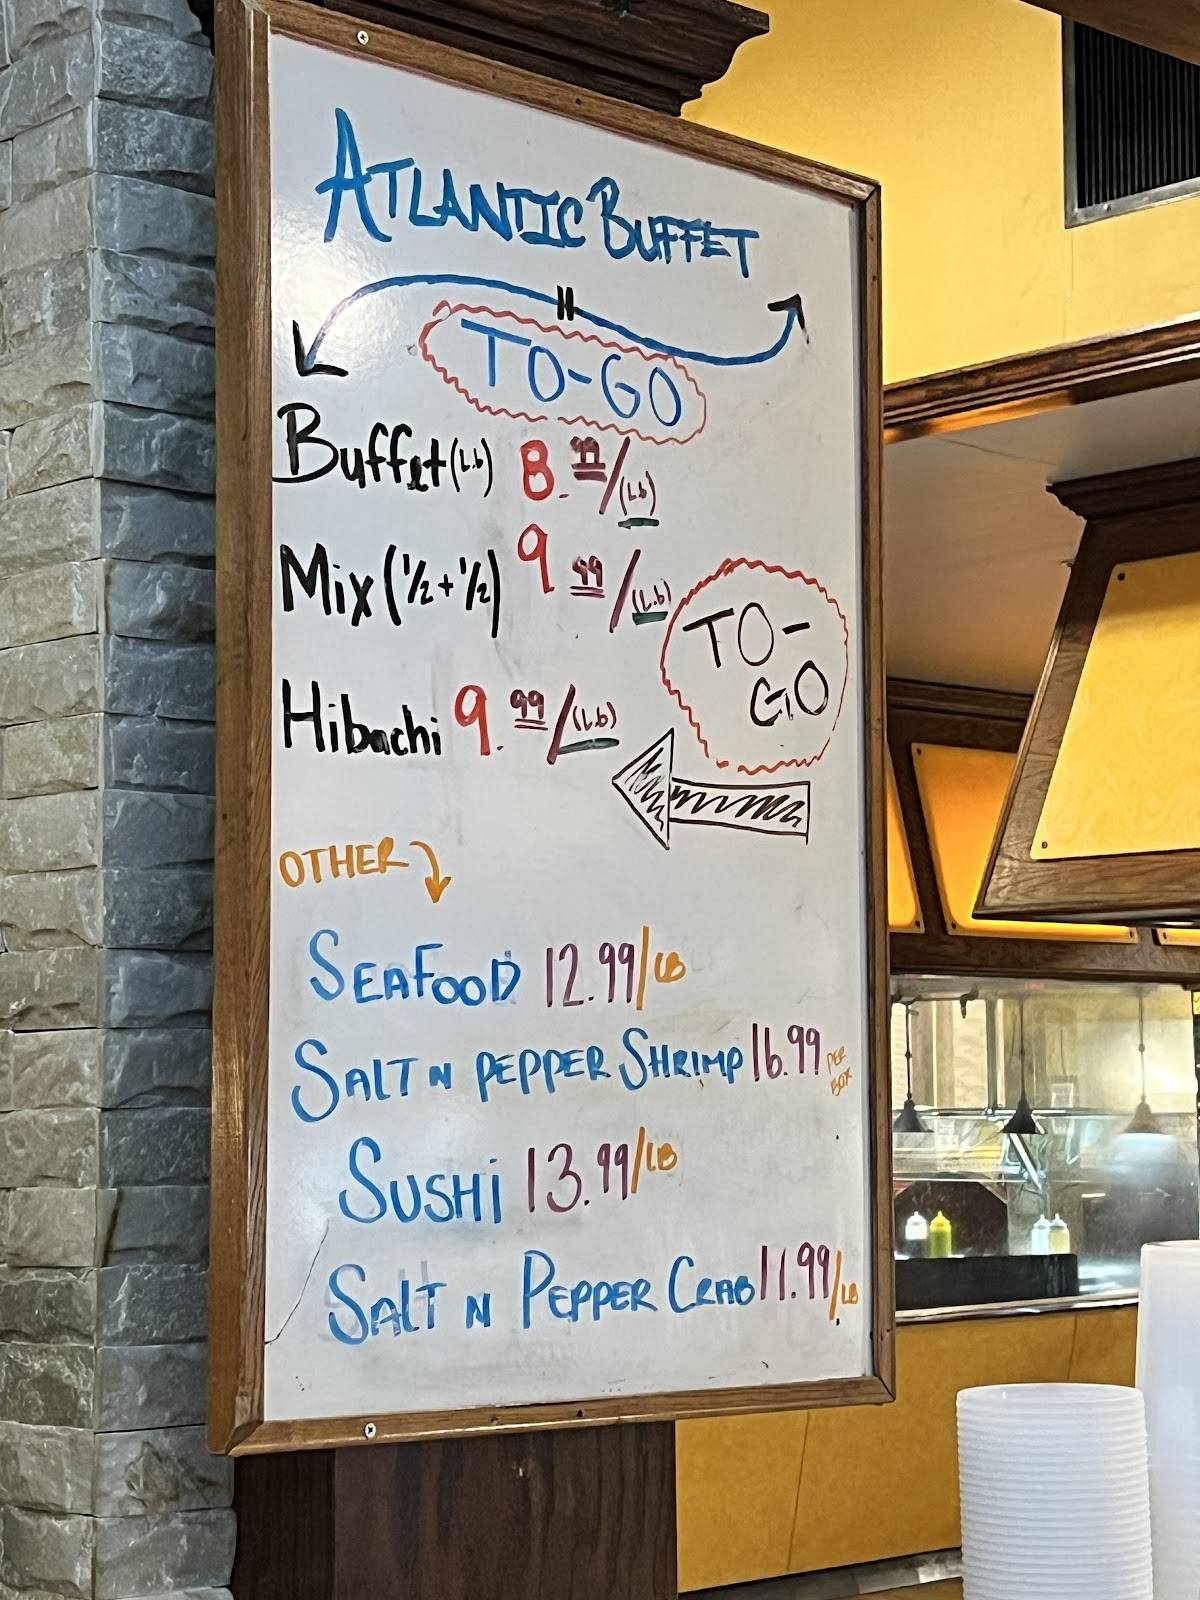 ATLANTIC BUFFET
TO-GO
Buffet (Lb) 8.99/(Lb)
Mix (1/2 + 1/2) 9 99/(Lb)
TO-
GO
Hibachi 9.99/(Lb)
OTHER
SEAFOOD 12.99/LB
SALT N PEPPER SHRIMP 16.99 PER
BOX
SUSHi 13.99/LB
SALT N PEPPER CRAB 11.99/LB